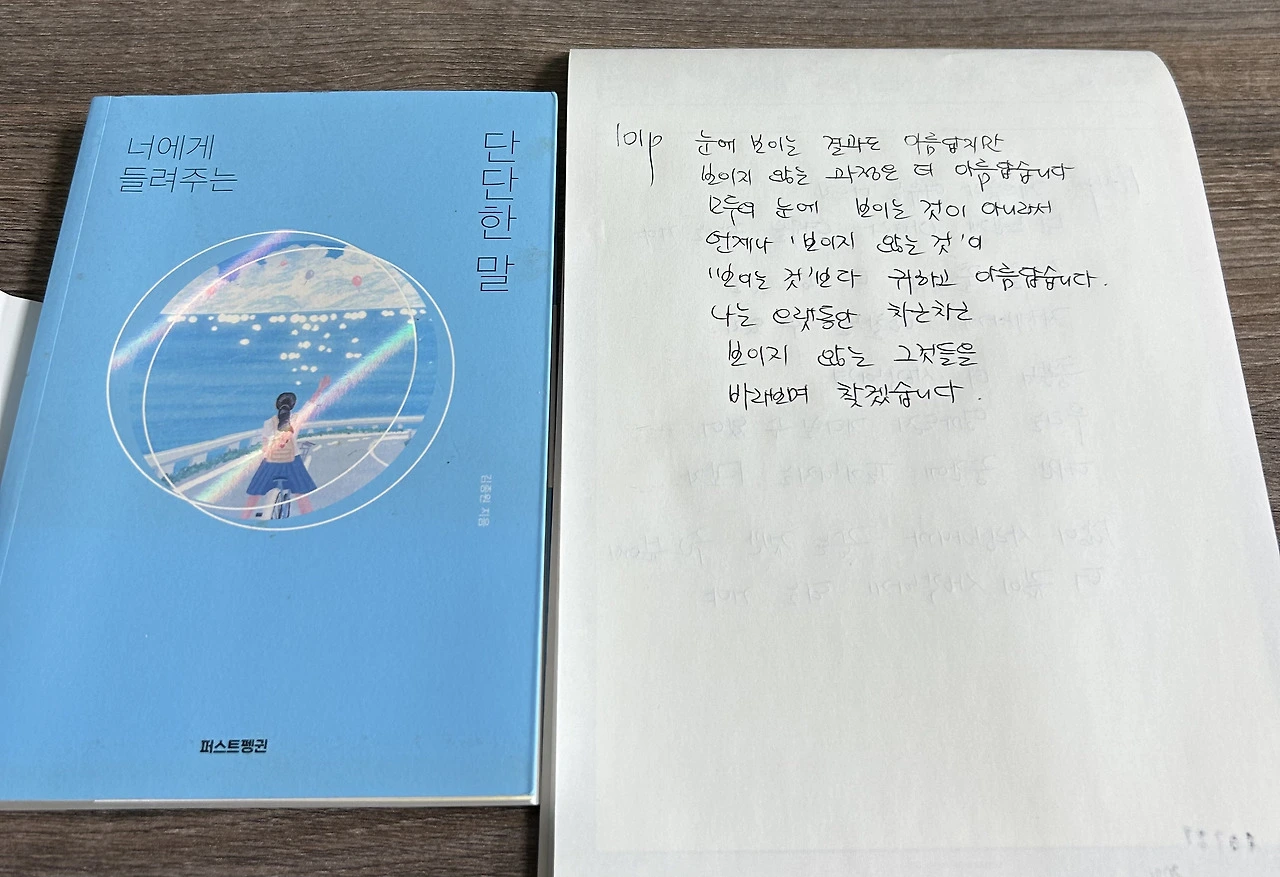 너에게
들려주는
단단한 말
김종원 지음
퍼스트펭귄
101p
눈에 보이는 결과도 아름답지만
보이지 않는 과정은 더 아름답습니다
모두의 눈에 보이는 것이 아니라서
언제나 '보이지 않는 것'이
'보이는 것'보다 귀하고 아름답습니다.
나는 오랫동안 차근차근
보이지 않는 그것들을
바라보며 찾겠습니다.